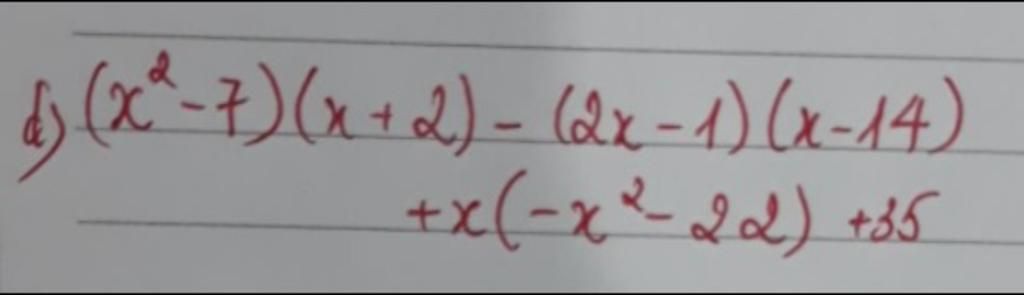 d) (x² - 7)(x + 2) - (2x - 1)(x - 14)
+ x(-x² - 22) + 35